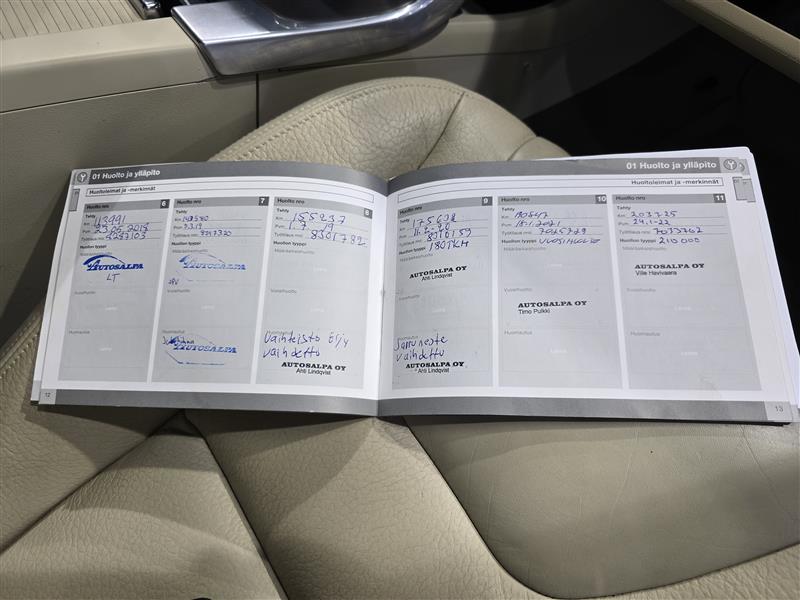 01 Huolto ja ylläpito
Huoltoleimat ja -merkinnät
Huolto nro 6
Tehty
Km
Pvm
Työtilaus nro
Huollon tyyppi
AUTOSALPA
LT
Vuosihuolto
Huomautus
12
Huolto nro 7
Tehty
Km
Pvm 7.3.19
Työtilaus nro
Huollon tyyppi
Määräaikaishuolto
AUTOSALPA
Vuosihuolto
Huomautus
AUTOSALPA
Huolto nro 8
Tehty
Km 155237
Pvm 1.7 19
Työtilaus nro 8301782
Huollon tyyppi
Määräaikaishuolto
Vuosihuolto
Huomautus
Vaihteisto öljy
vaihdettu
AUTOSALPA OY
Ahti Lindqvist
01 Huolto ja ylläpito
Huoltoleimat ja -merkinnät
Huolto nro 9
Tehty
Km
Pvm
Työtilaus nro
Huollon tyyppi 180TKM
Määräaikaishuolto
AUTOSALPA OY
Ahti Lindqvist
Vuosihuolto
Huomautus
Jarruneste
vaihdettu
AUTOSALPA OY
Ahti Lindqvist
Huolto nro 10
Tehty
Km
Pvm 18.1.2021
Työtilaus nro
Huollon tyyppi VUOSIHUOLTO
Määräaikaishuolto
Vuosihuolto
AUTOSALPA OY
Timo Pulkki
Huomautus
Huolto nro 11
Tehty
Km 203725
Pvm 24.1-22
Työtilaus nro 7033762
Huollon tyyppi 210 000
Määräaikaishuolto
AUTOSALPA OY
Ville Havivaara
Vuosihuolto
Huomautus
13